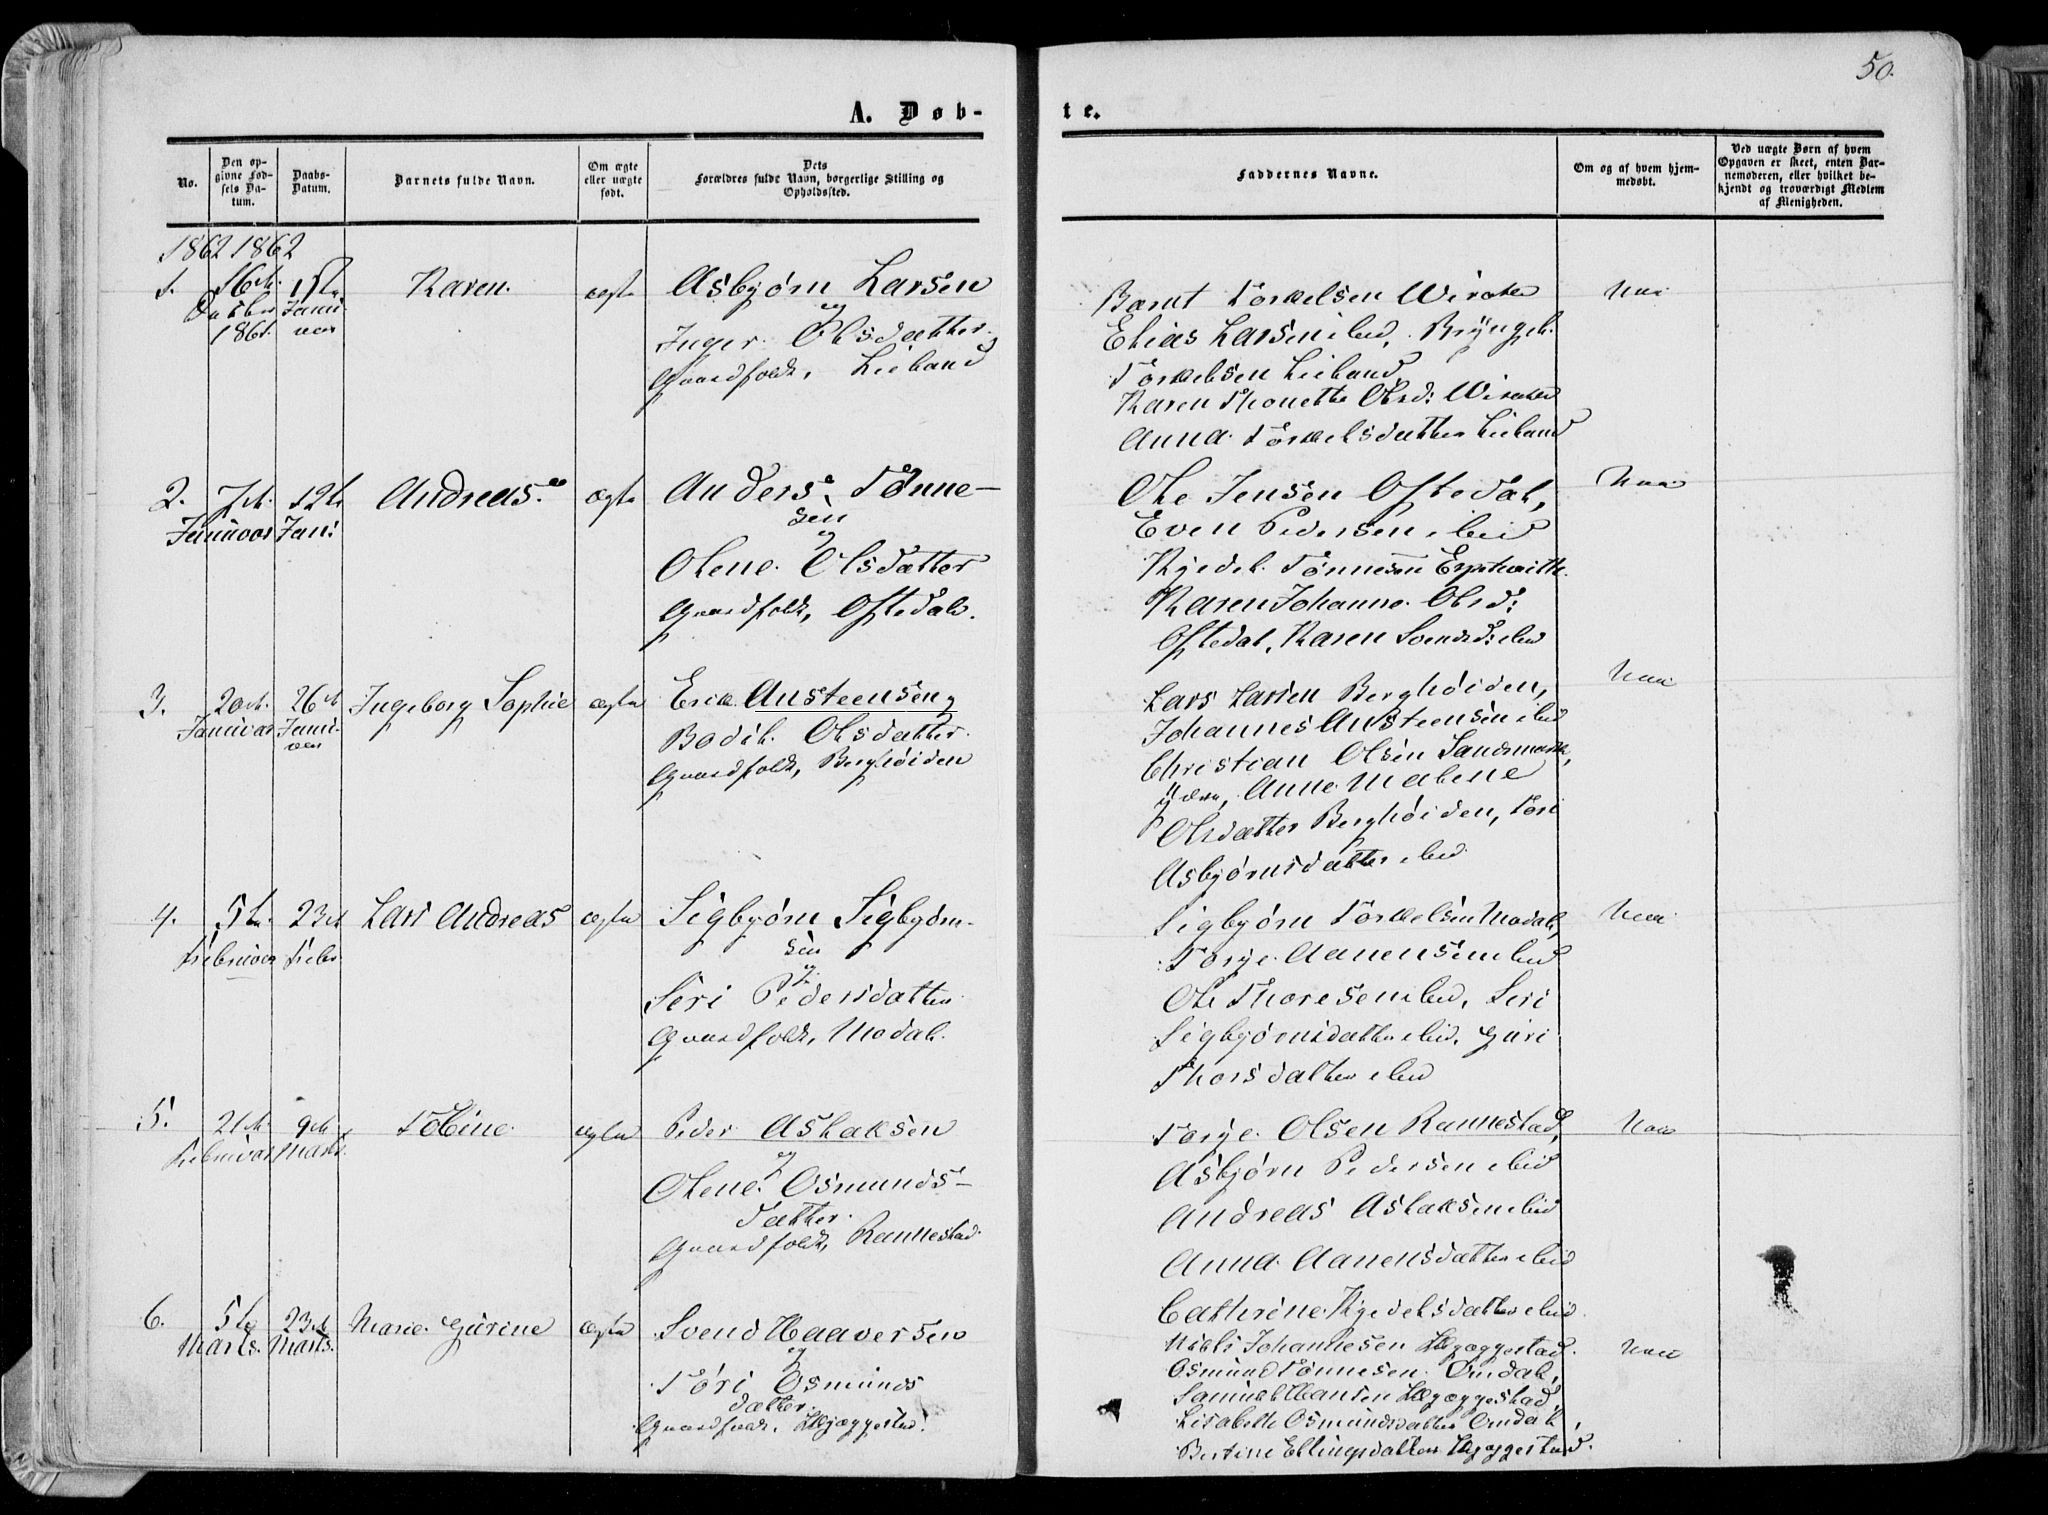 50.
A. Døb-
te.
No.
Den op-
givne Fød-
sels Da-
tum.
Daabs-
Datum.
Barnets fulde Navn.
Om ægte
eller uægte
født.
Dets
Forældres fulde Navn, borgerlige Stilling og
Opholdssted.
Faddernes Navne.
Om og af hvem hjem-
medøbt.
Ved uægte Børn af hvem
Opgaven er skeet, enten Bar-
nemoderen, eller hvilket be-
kjendt og troværdigt Medlem
af Menigheden.
1862 1862
1.
16de
1861.
Janu-
var
Karen.
ægte
Asbjørn Larsen
og
Inger Olsdatter
Gaardfolk, Lieland
Torkelsen
Elias Larsen ibid,
Torkelsen Lieland
Karen Thonette Olsd:
Anna Torkelsdatter Lieland
2.
7de
Januvar
12te
Jan:
Andreas.
ægte
Anders Tønne-
sen
og
Olene Olsdatter
Gaardfolk, Oftedal.
Ole Jensen Oftedal,
Even Pedersen ibid
Tønnesen
Karen Johanne Olsd:
Oftedal, Karen Svendsd: ibid
3.
20de
Januvar
26de
Janu-
var
Ingeborg Sophie
ægte
Erik Austeensen og
Bodil Olsdatter
Gaardfolk, Berghøiden
Lars Larsen Berghøiden,
Johannes Austeensen ibid
Christian Olsen Sandsmark,
Anne Malene
Olsdatter Berghøiden, Tori
Asbjørnsdatter ibid
4.
5te
Februvar
23de
Febr.
Lars Andreas
ægte
Sigbjørn Sigbjørn-
sen
og
Siri Pedersdatter
Gaardfolk, Modal.
Sigbjørn Torkelsen Modal,
Torje Aanensen ibid
Ole Thoresen ibid, Siri
Sigbjørnsdatter ibid, Guri
Thorsdatter ibid
5.
21de
Februvar
9de
Marts.
Tobine.
ægte
Peder Aslaksen
og
Olene Osmunds-
datter.
Gaardfolk, Rannestad.
Torje Olsen Rannestad,
Asbjørn Pedersen ibid
Andreas Aslaksen ibid
Anna Aanensdatter ibid
Cathrine Kjedelsdatter ibid
6.
5te
Marts.
23de
Marts.
Marie Gurine
ægte
Svend Haaversen
og
Tori Osmunds
datter.
Gaardfolk, Hægæggestad.
Niels Johannesen Hægæggestad.
Osmund Tønnesen Omdal,
Samuel Hansen Hægæggestad,
Lisabeth Osmundsdatter Omdal,
Bertine Ellingsdatter Hægæggestad.